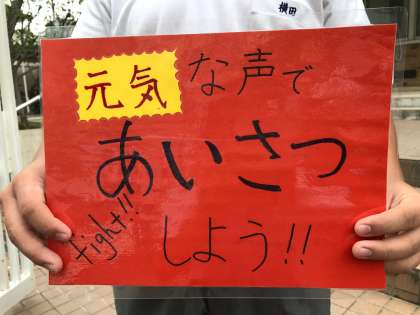 横田
元気な声で
あいさつ
fight!!
しよう!!